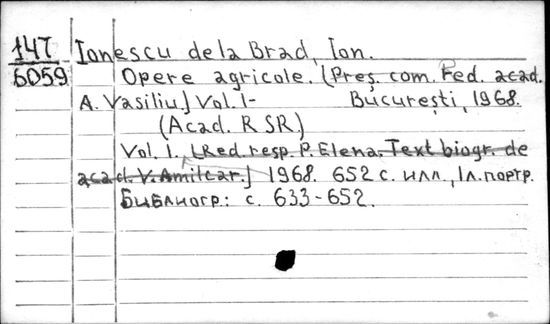 147 Ionescu de la Brad, Ion.
6059 Opere agricole. [Preş. com. Red. acad.
A. Vasiliu] Vol. 1- Bucureşti, 1968.
(Acad. RSR)
Vol. 1. [Red. resp. P. Elena. Text biogr. de
acad. V. Amilcar.] 1968. 652 с. илл., 1 л. портр.
Библиогр.: с. 633-652.